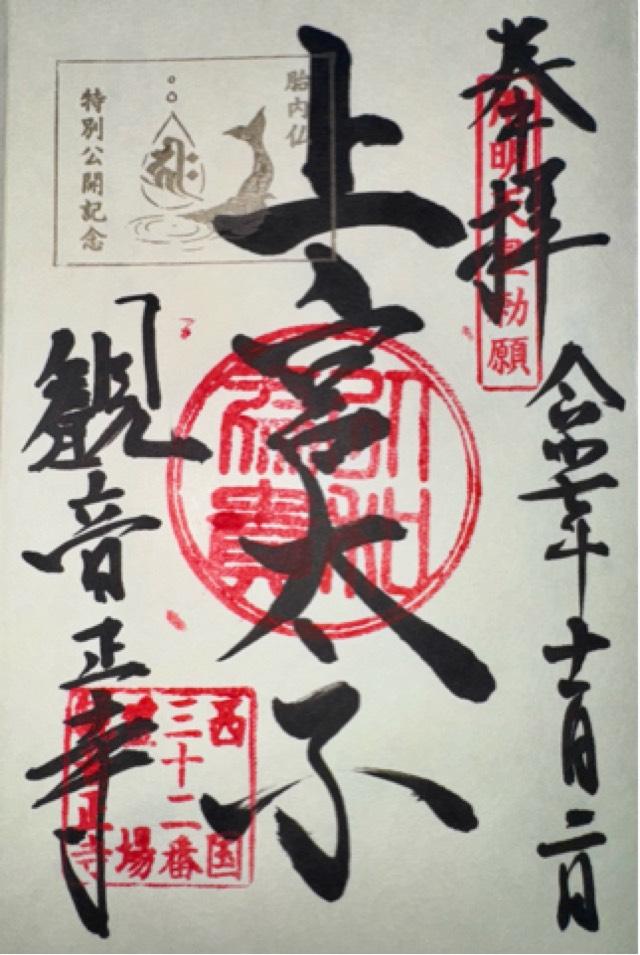 奉拝
用明天皇勅願
令和七年十一月二日
上宮太子
胎内仏
特別公開記念
観音正寺
西国
三十二番
場
正寺